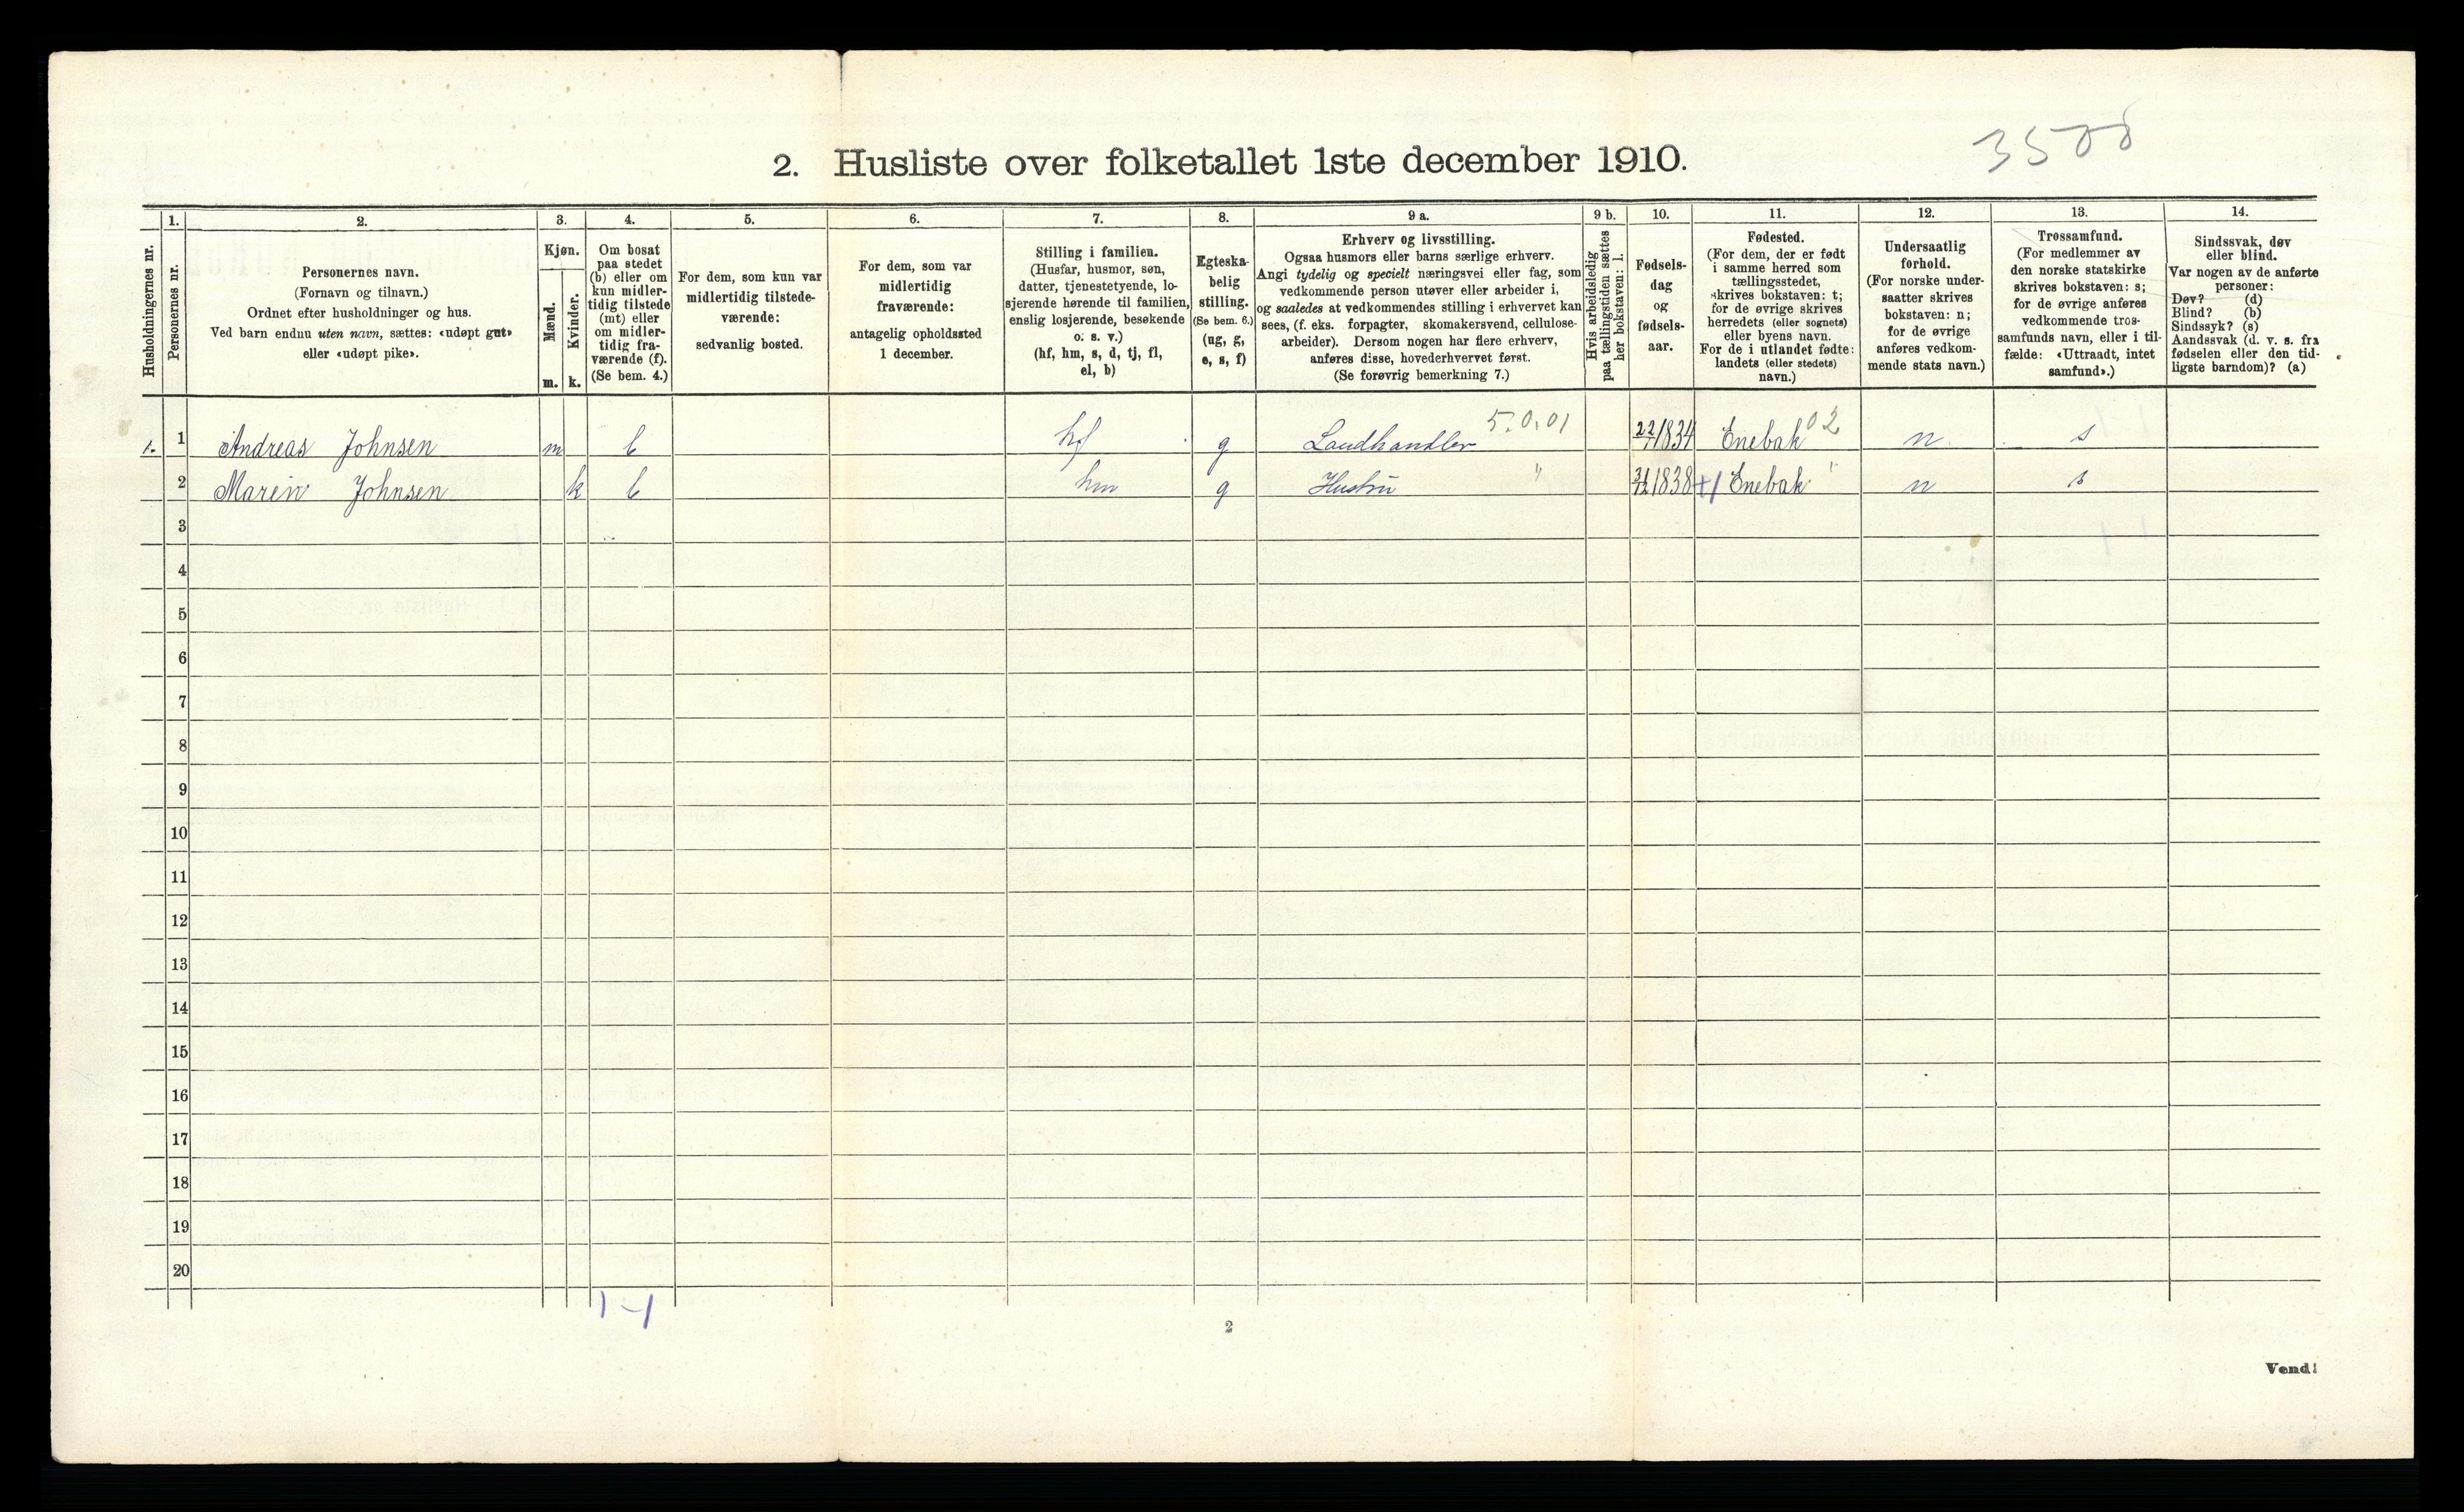 3500
2. Husliste over folketallet 1ste december 1910.
Husholdningernes nr.
1.
Personernes nr.
2.
Personernes navn.
(Fornavn og tilnavn.)
Ordnet efter husholdninger og hus.
Ved barn endnu uten navn, sættes: «udøpt gut»
eller «udøpt pike».
3.
Kjøn.
Mænd.
Kvinder.
m. k.
4.
Om bosat
paa stedet
(b) eller om
kun midler-
tidig tilstede
(mt) eller
om midler-
tidig fra-
værende (f).
(Se bem. 4.)
5.
For dem, som kun var
midlertidig tilstede-
værende:
sedvanlig bosted.
6.
For dem, som var
midlertidig
fraværende:
antagelig opholdssted
1 december.
7.
Stilling i familien.
(Husfar, husmor, søn,
datter, tjenestetyende, lo-
sjerende hørende til familien,
enslig losjerende, besøkende
o. s. v.)
(hf, hm, s, d, tj, fl,
el, b)
8.
Egteska-
belig
stilling.
(Se bem. 6.)
(ug, g,
e, s, f)
9 a.
Erhverv og livsstilling.
Ogsaa husmors eller barns særlige erhverv.
Angi tydelig og specielt næringsvei eller fag, som
vedkommende person utøver eller arbeider i,
og saaledes at vedkommendes stilling i erhvervet kan
sees, (f. eks. forpagter, skomakersvend, cellulose-
arbeider). Dersom nogen har flere erhverv,
anføres disse, hovederhvervet først.
(Se forøvrig bemerkning 7.)
9 b.
Hvis arbeidsledig
paa tællingstiden sættes
her bokstaven: l.
10.
Fødsels-
dag
og
fødsels-
aar.
11.
Fødested.
(For dem, der er født
i samme herred som
tællingsstedet,
skrives bokstaven: t;
for de øvrige skrives
herredets (eller sognets)
eller byens navn.
For de i utlandet fødte:
landets (eller stedets)
navn.)
12.
Undersaatlig
forhold.
(For norske under-
saatter skrives
bokstaven: n;
for de øvrige
anføres vedkom-
mende stats navn.)
13.
Trossamfund.
(For medlemmer av
den norske statskirke
skrives bokstaven: s;
for de øvrige anføres
vedkommende tros-
samfunds navn, eller i til-
fælde: «Uttraadt, intet
samfund».)
14.
Sindssvak, døv
eller blind.
Var nogen av de anførte
personer:
Døv? (d)
Blind? (b)
Sindssyk? (s)
Aandssvak (d. v. s. fra
fødselen eller den tid-
ligste barndom)? (a)
1. 1 Andreas Johnsen m b hf g Landhandler 5.0.01 22/1 1834 Enebak 02 n s
2 Maren Johnsen k b hm g Hustru " 1838 Enebak " n s
3
4
5
6
7
8
9
10
11
12
13
14
15
16
17
18
19
20
1-1
2
Vend!